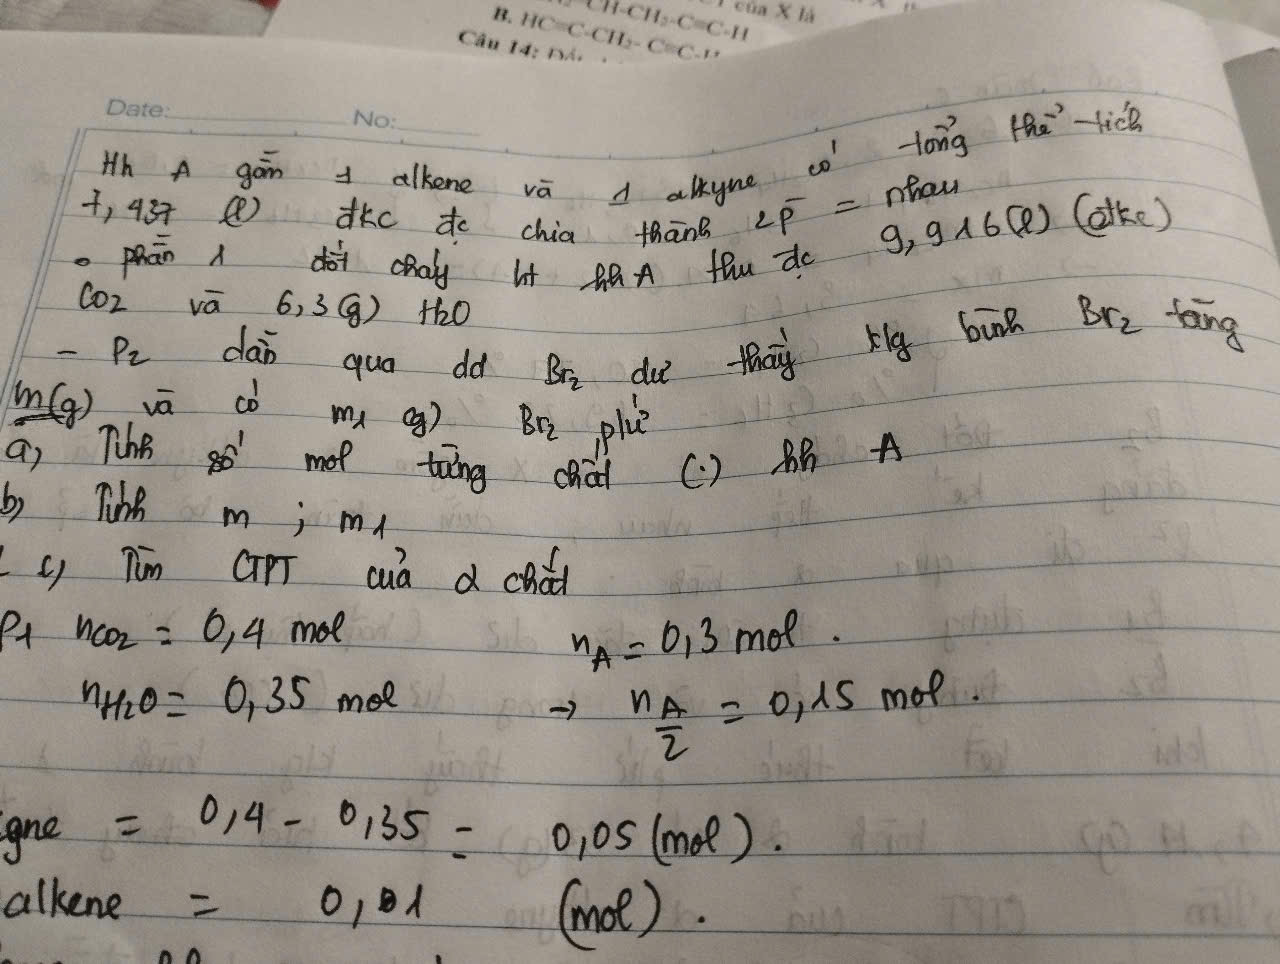 của X là
CH-CH₂-C≡C-H
B. HC≡C-CH₂-C≡C-H
Câu 14:
Date: No:
Hh A gồm 1 alkene và 1 alkyne có tổng thể tích
7,437 (l) đkc đc chia thành 2 p̄ = nhau
• phần 1 đốt cháy ht hh A thu đc 9,916 (l) (đkc)
CO₂ và 6,3 (g) H₂O
- P₂ dẫn qua dd Br₂ dư thấy klg bình Br₂ tăng
m(g) và có m₁ (g) Br₂ p/ứ
a, Tính số mol từng chất (.) hh A
b, Tính m ; m₁
c, Tìm CTPT của 2 chất
P1 nCO₂ = 0,4 mol nA = 0,3 mol .
nH₂O = 0,35 mol → nA/2 = 0,15 mol .
= 0,4 - 0,35 = 0,05 (mol) .
alkene = 0,01 (mol) .